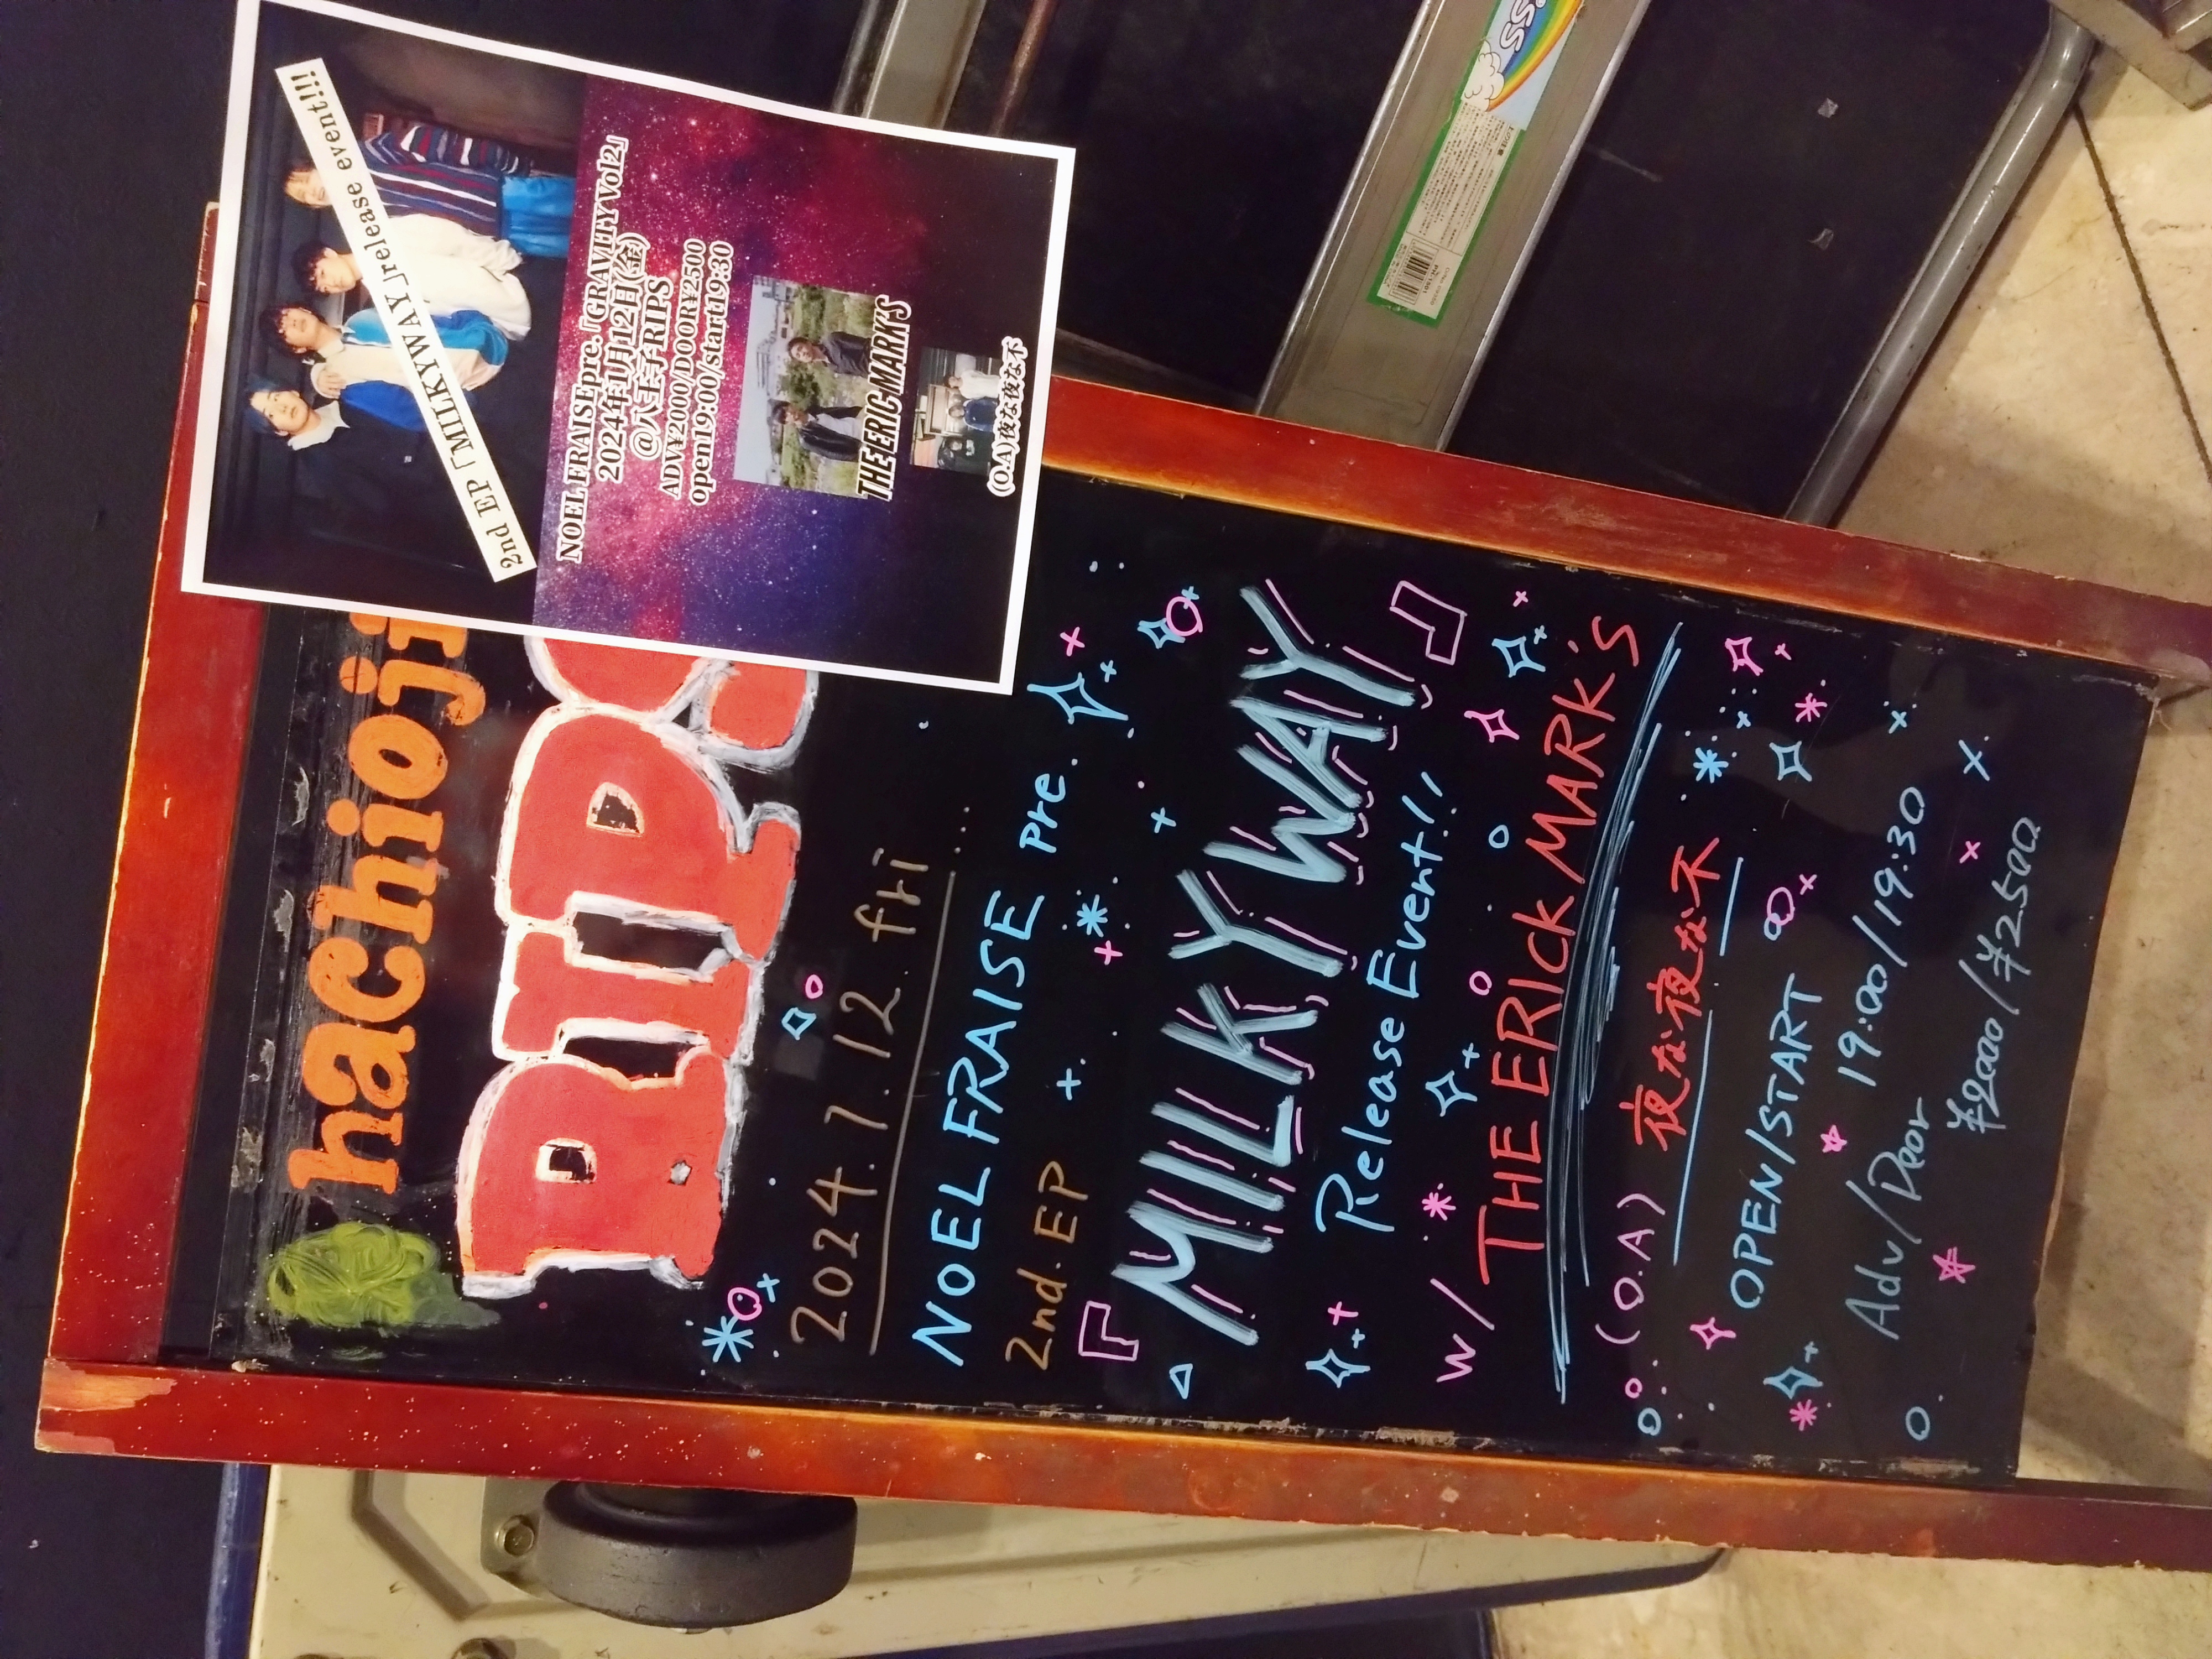 2nd EP「MILKYWAY」release event!!!
NOEL FRAISE pre.「GRAVITY Vol2」
2024年7月12日(金)
@八王子RIPS
ADV¥2000/DOOR¥2500
open19:00/start19:30
THE ERIC MARK'S
(O.A)夜な夜な不
hachioji
RIPS
2024.7.12.fri...
NOEL FRAISE pre.
2nd.EP
『MILKY WAY』
Release Event!!
w/ THE ERICK MARK's
(O.A) 夜な夜な不
OPEN/START
19:00/19:30
Adv/Door
¥2000/¥2500